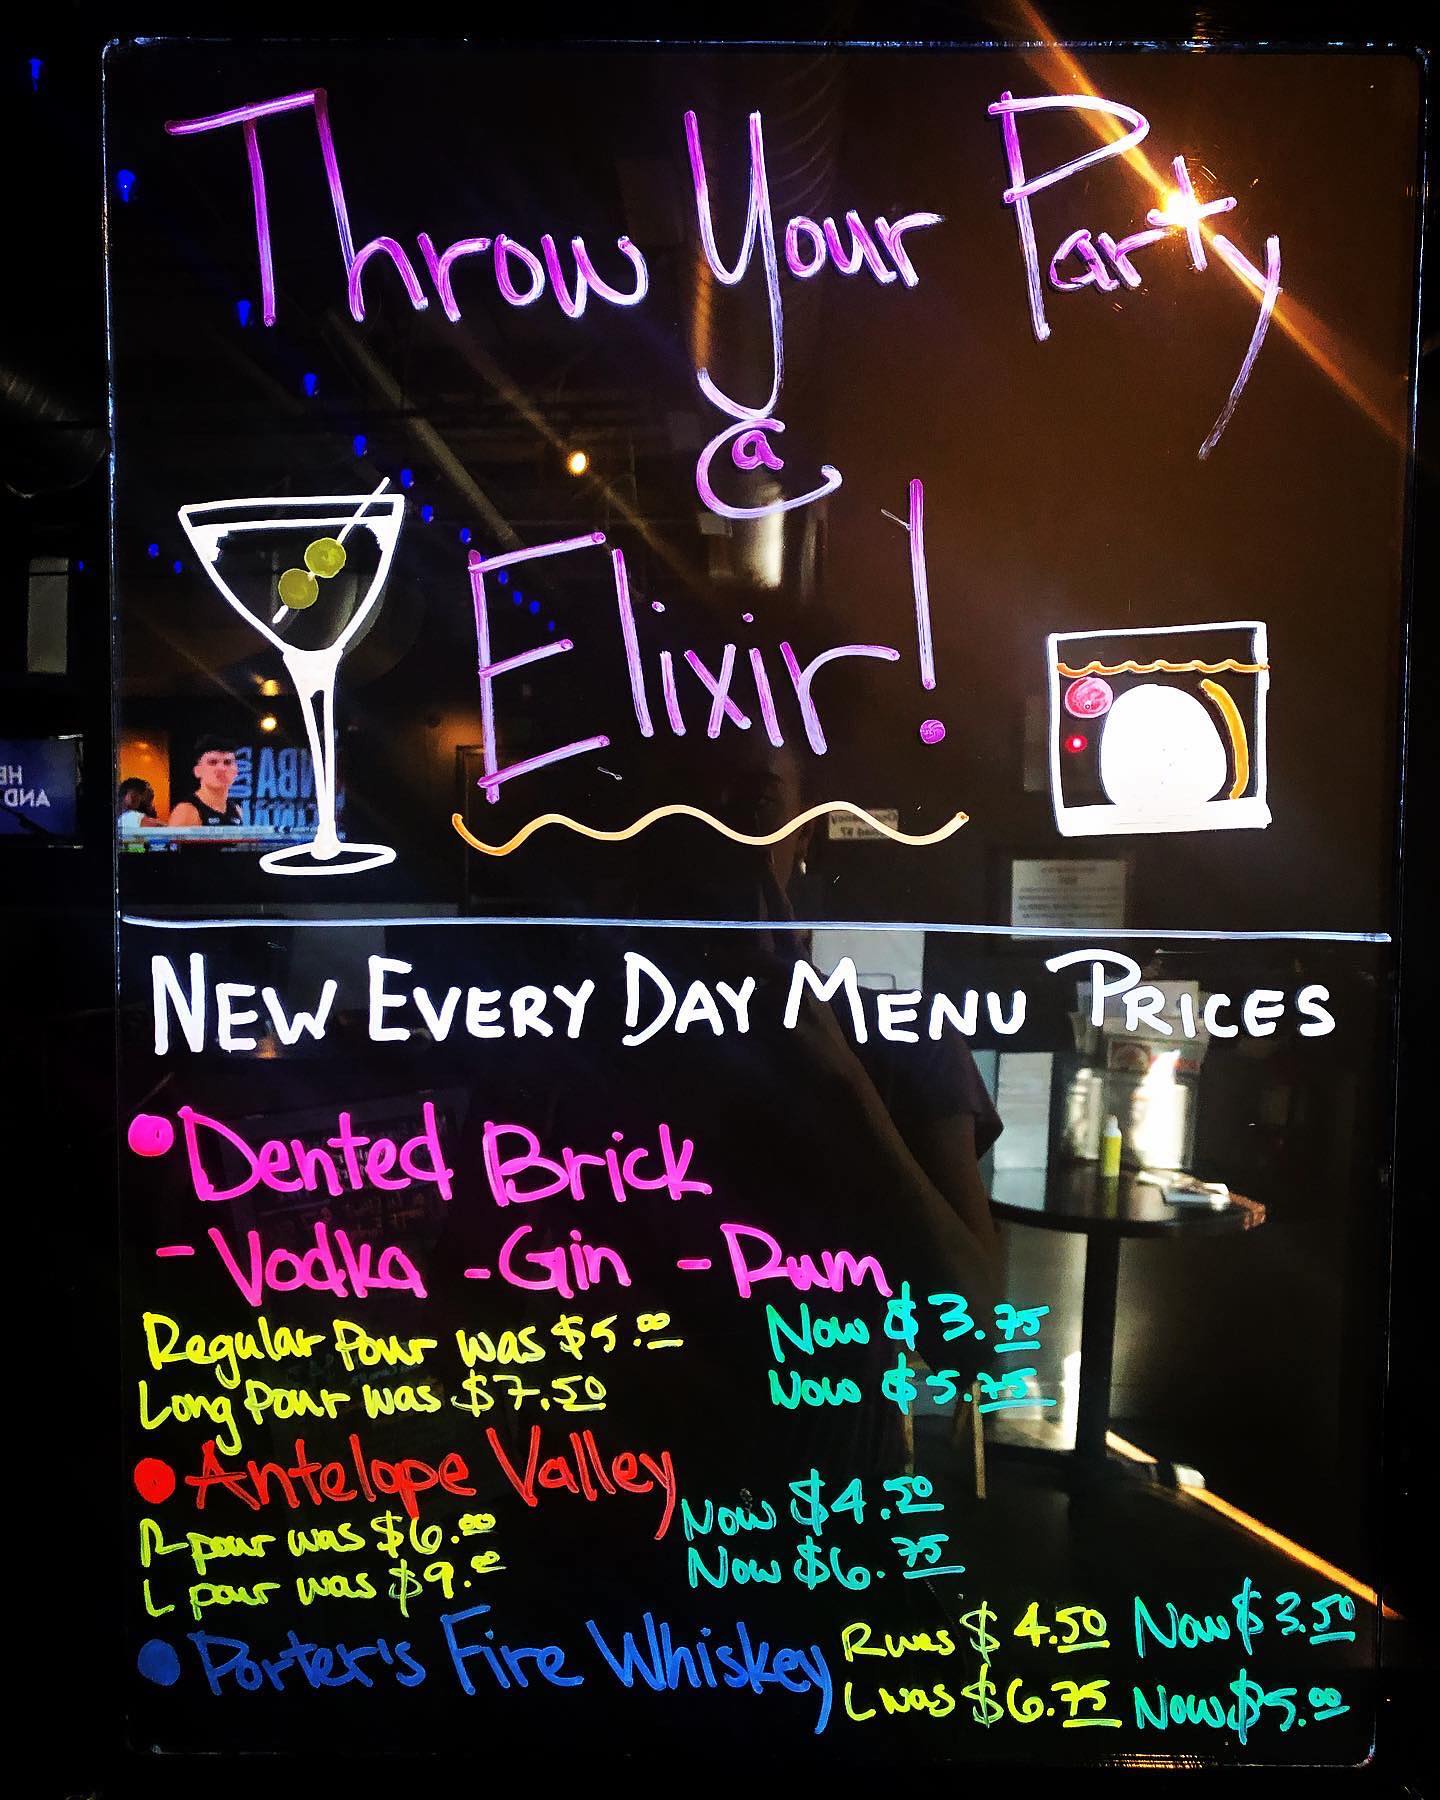 Throw Your Party
@
Elixir!
NEW EVERY DAY MENU PRICES
Dented Brick
- Vodka - Gin - Rum
Regular Pour was $5.00 Now $3.75
Long Pour was $7.50 Now $5.75
Antelope Valley
R pour was $6.00 Now $4.50
L pour was $9.00 Now $6.75
Porter's Fire Whiskey
R was $4.50 Now $3.50
L was $6.75 Now $5.00
NBA
HE
AND